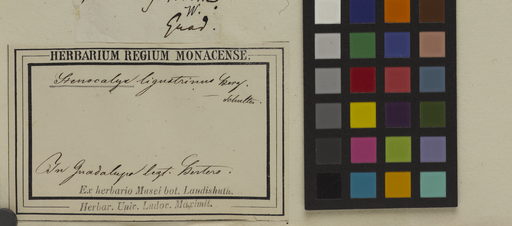 W.
Guad.
HERBARIUM REGIUM MONACENSE.
Stenocalyx ligustrinus Berg.
In Guadalupa legt. Bertero.
Ex herbario Musei bot. Landishuth.
Herbar. Univ. Ludov. Maximil.